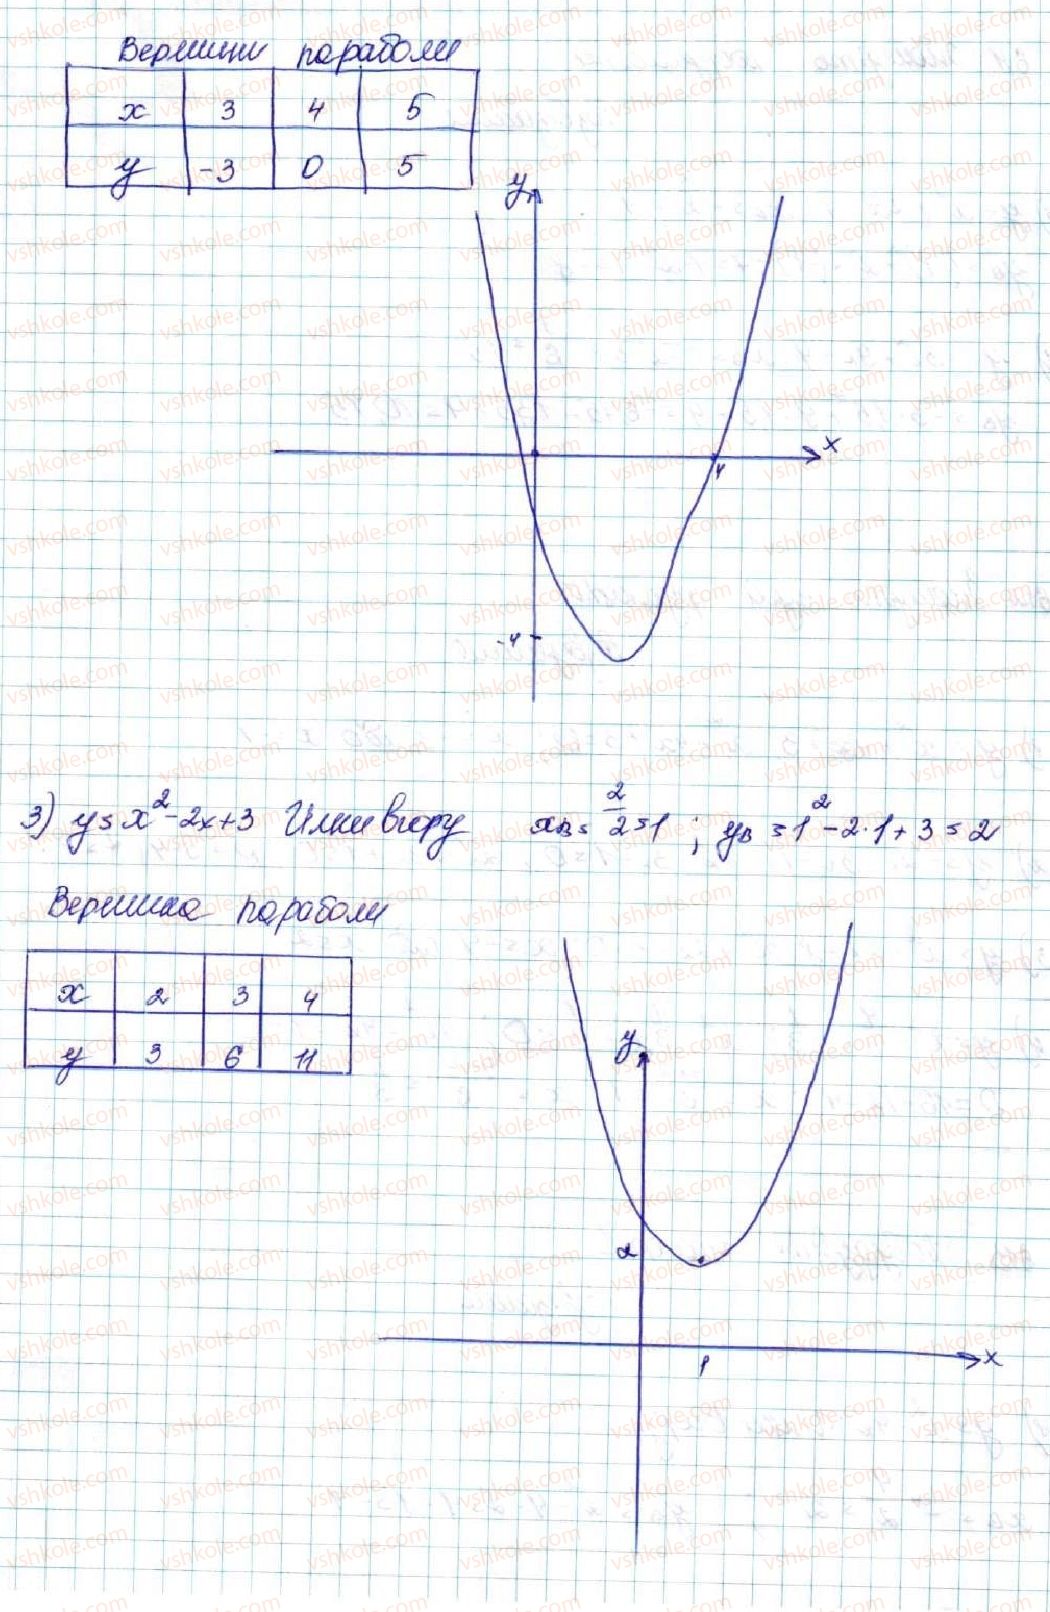 Вершини параболи
x 3 4 5
y -3 0 5
y
x
4
-4
3) y = x² - 2x + 3 Гілки вгору xв = 2/2 = 1 ; yв = 1² - 2·1 + 3 = 2
Вершина параболи
x 2 3 4
y 3 6 11
y
2
x
1